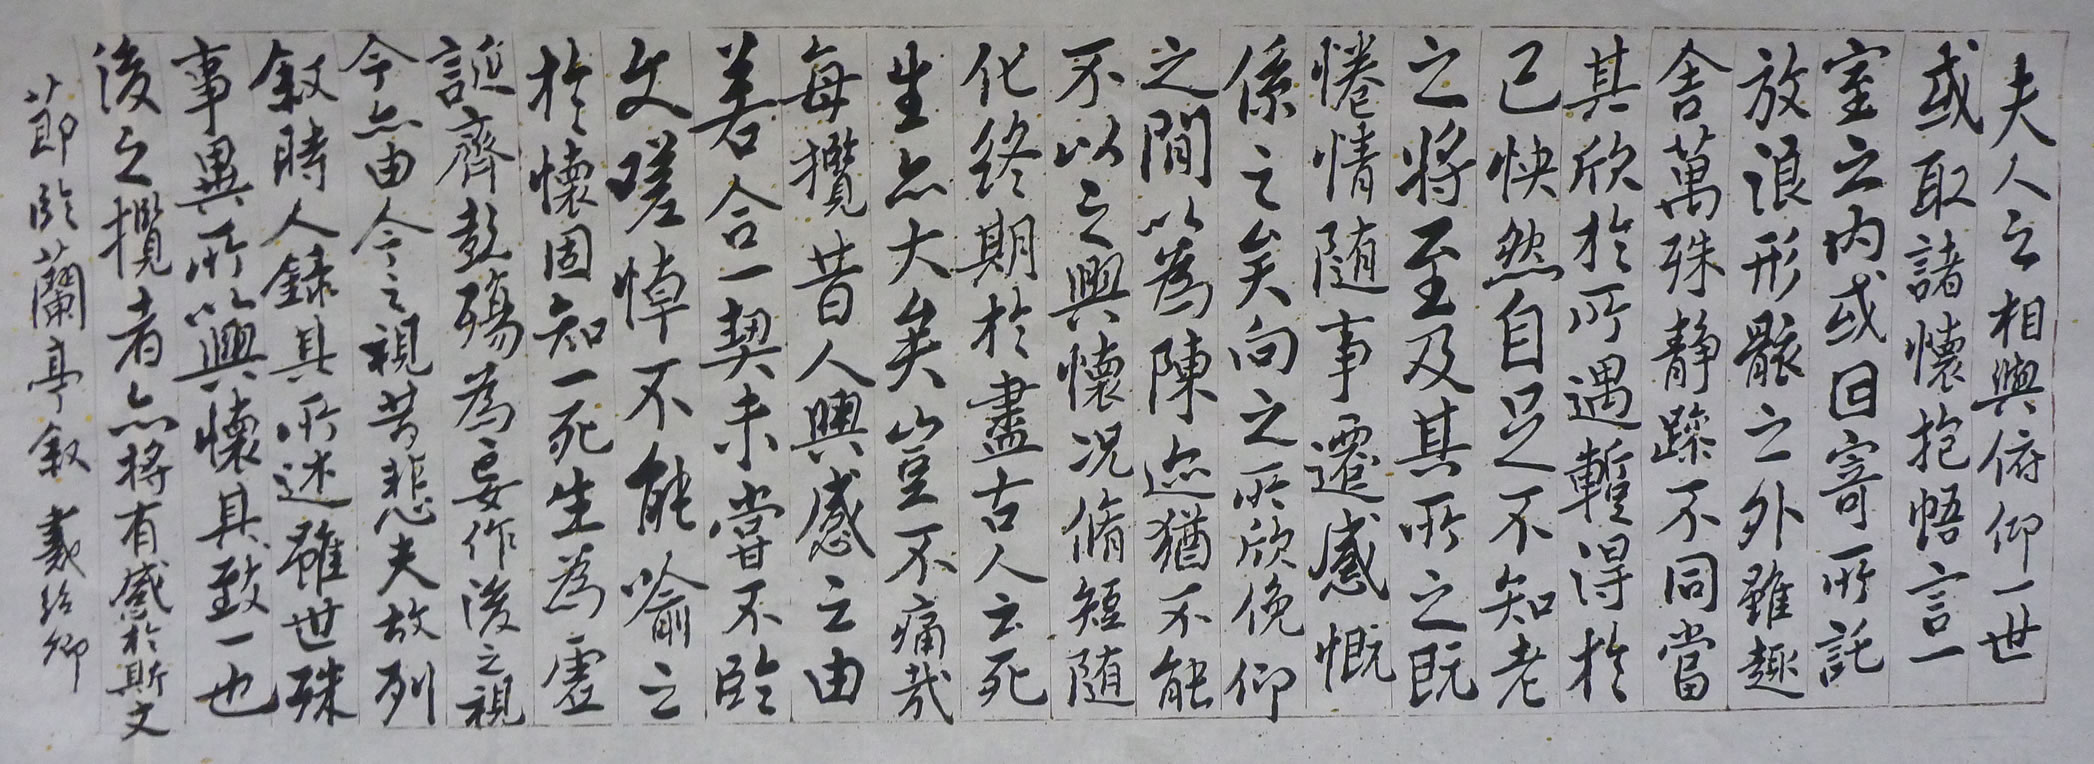 夫人之相與俯仰一世
或取諸懷抱悟言一
室之内或因寄所託
放浪形骸之外雖趣
舍萬殊静躁不同當
其欣於所遇暫得於
己快然自足不知老
之將至及其所之既
惓情随事遷感慨
係之矣向之所欣俛仰
之間以為陳迹猶不能
不以之興懷况脩短随
化終期於盡古人云死
生亦大矣豈不痛哉
每攬昔人興感之由
若合一契未嘗不臨
文嗟悼不能喻之
於懷固知一死生為虛
誕齊彭殤為妄作後之視
今亦由今之視昔悲夫故列
叙時人錄其所述雖世殊
事異所以興懷其致一也
後之攬者亦將有感於斯文
節臨蘭亭叙 羲紹卿